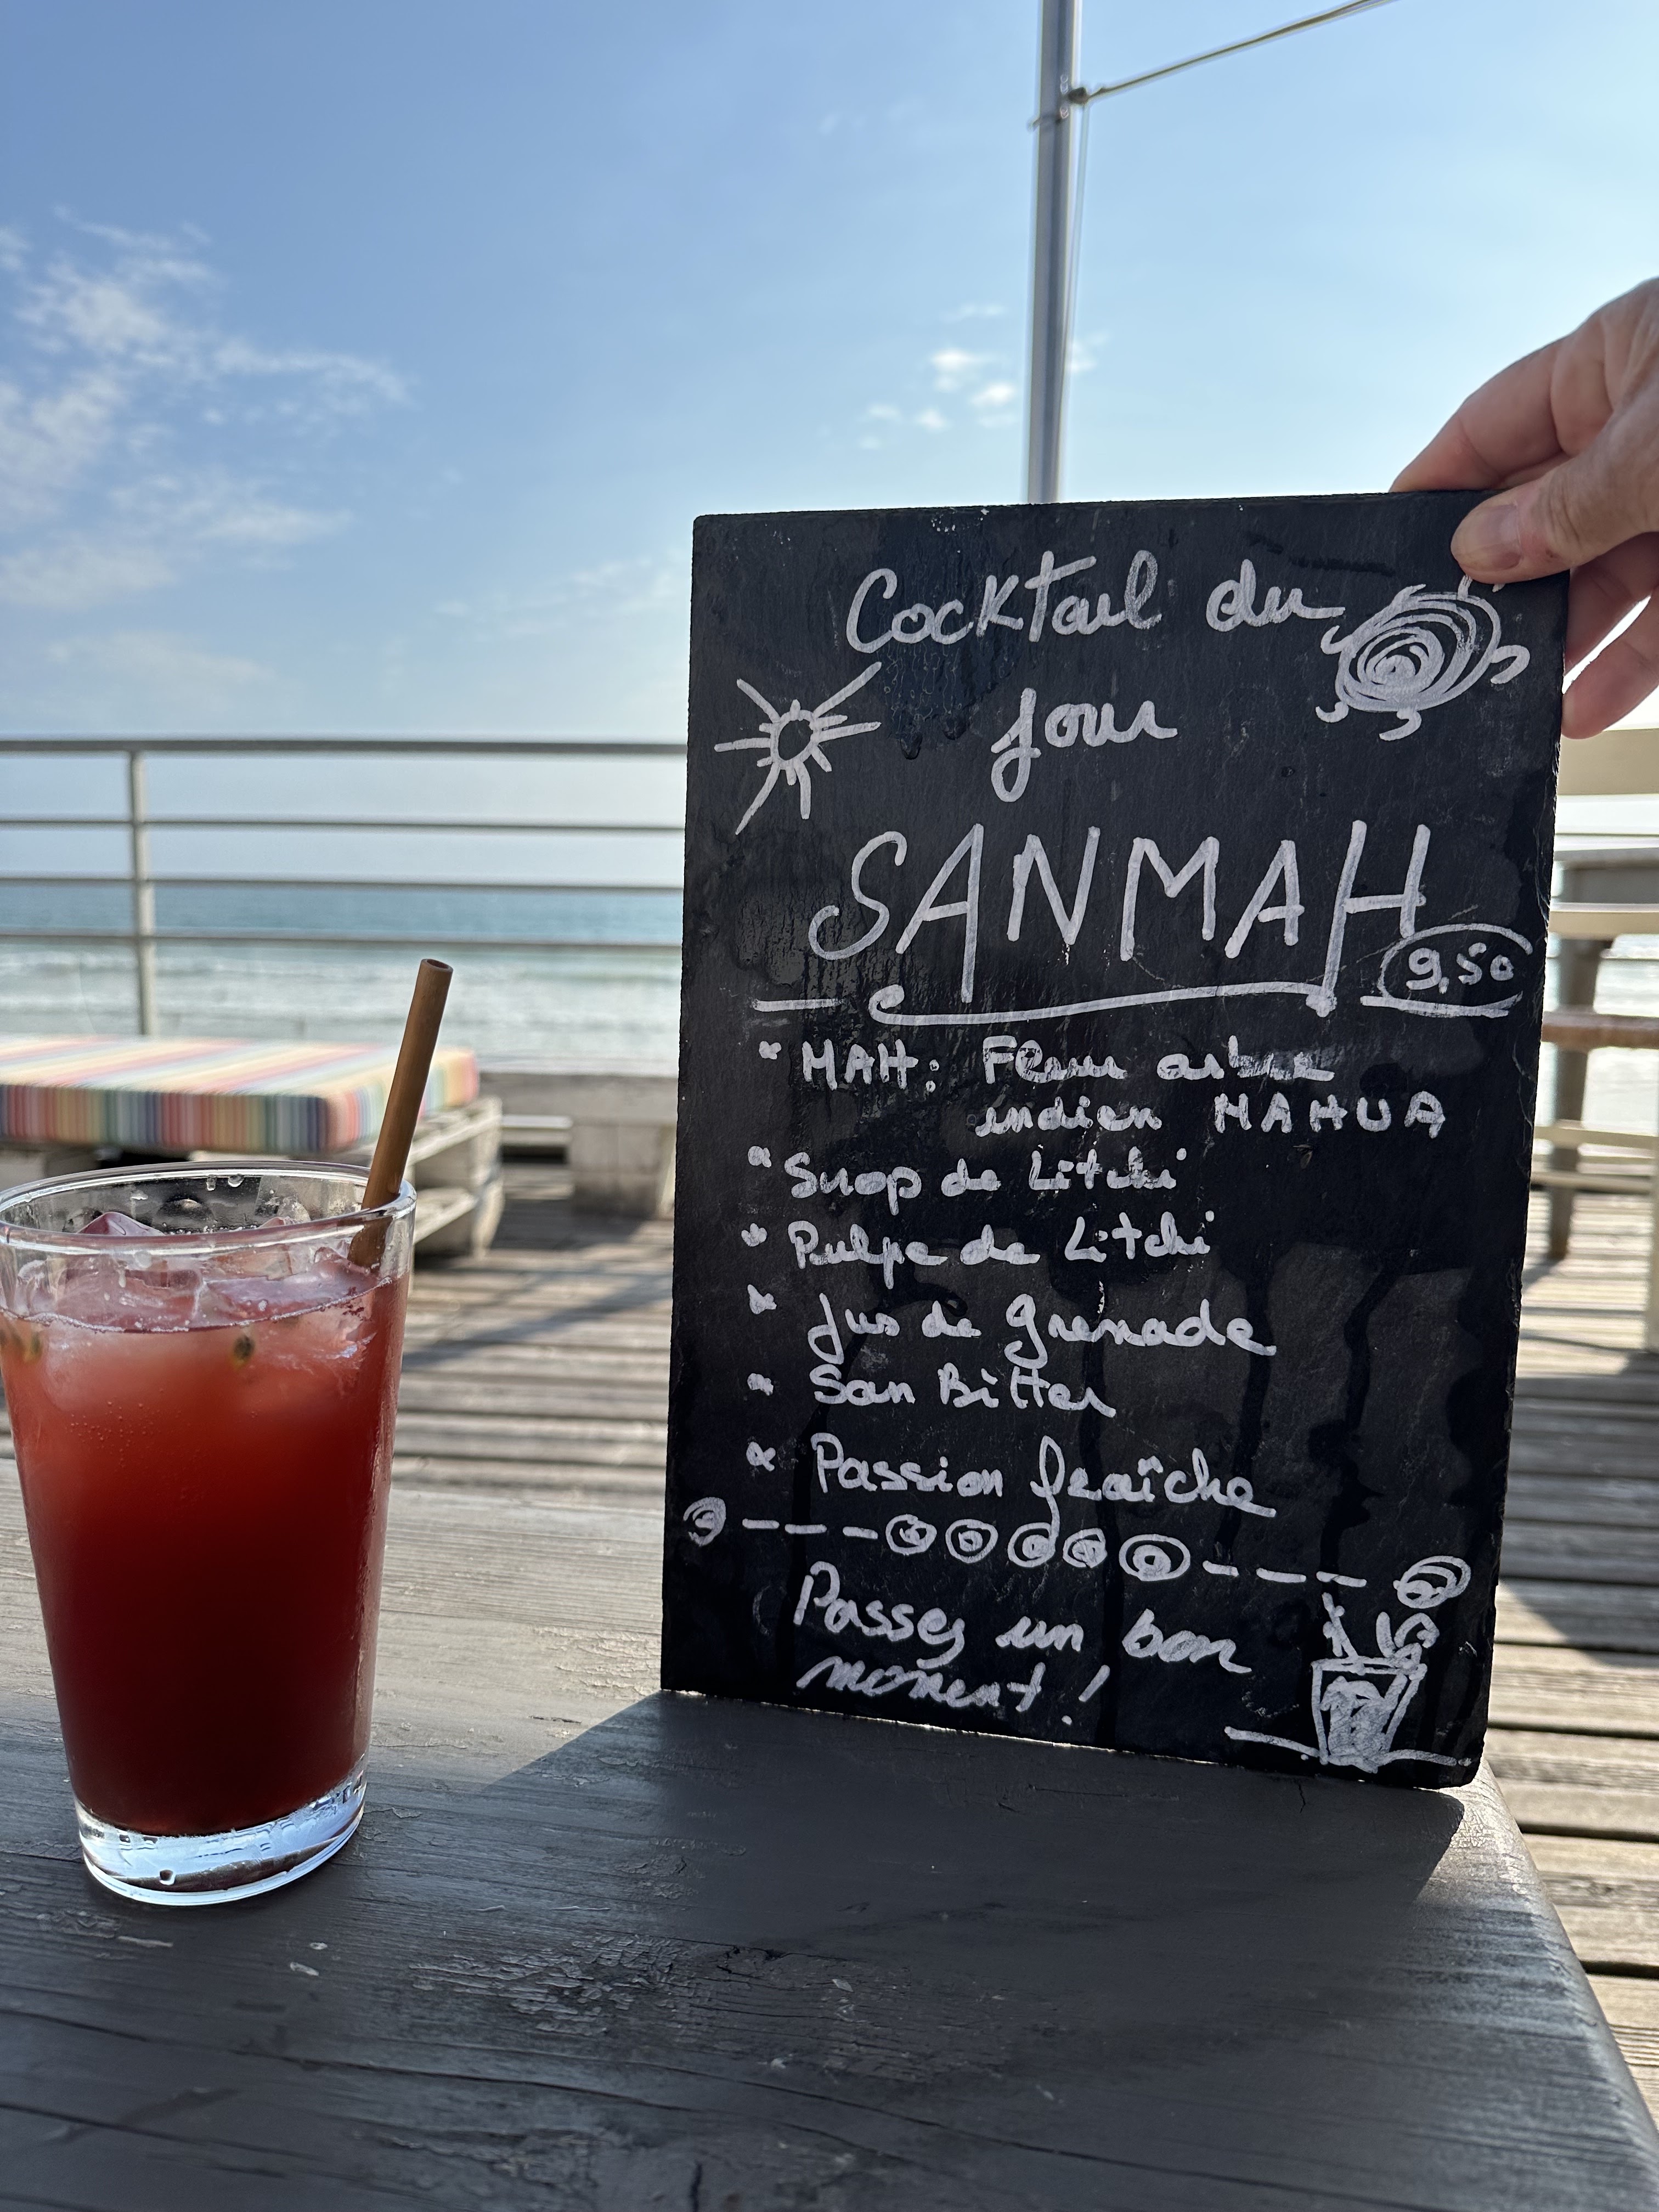 Cocktail du
jour
SANMAH
9,50
* MAH: Fleur arbre
indien MAHUA
* Sirop de Litchi
* Pulpe de Litchi
* Jus de grenade
* San Bitter
* Passion fraîche
Passez un bon
moment !